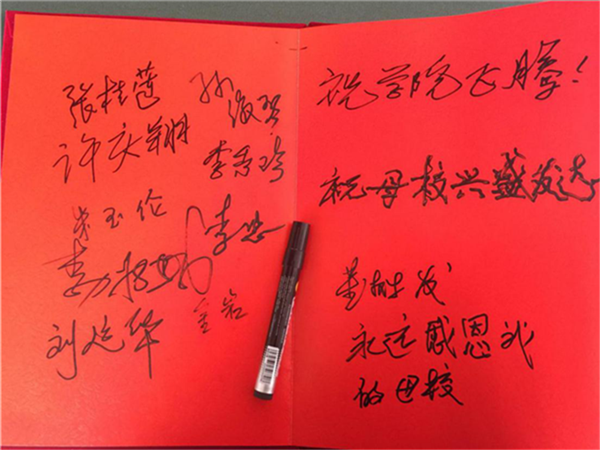 张桂莲
许庆翔
孙俊
李秀玲
朱玉伦
李忠
李
刘延华
金岩
祝学院飞腾！
祝母校兴盛发达
发
永远感恩我
的母校